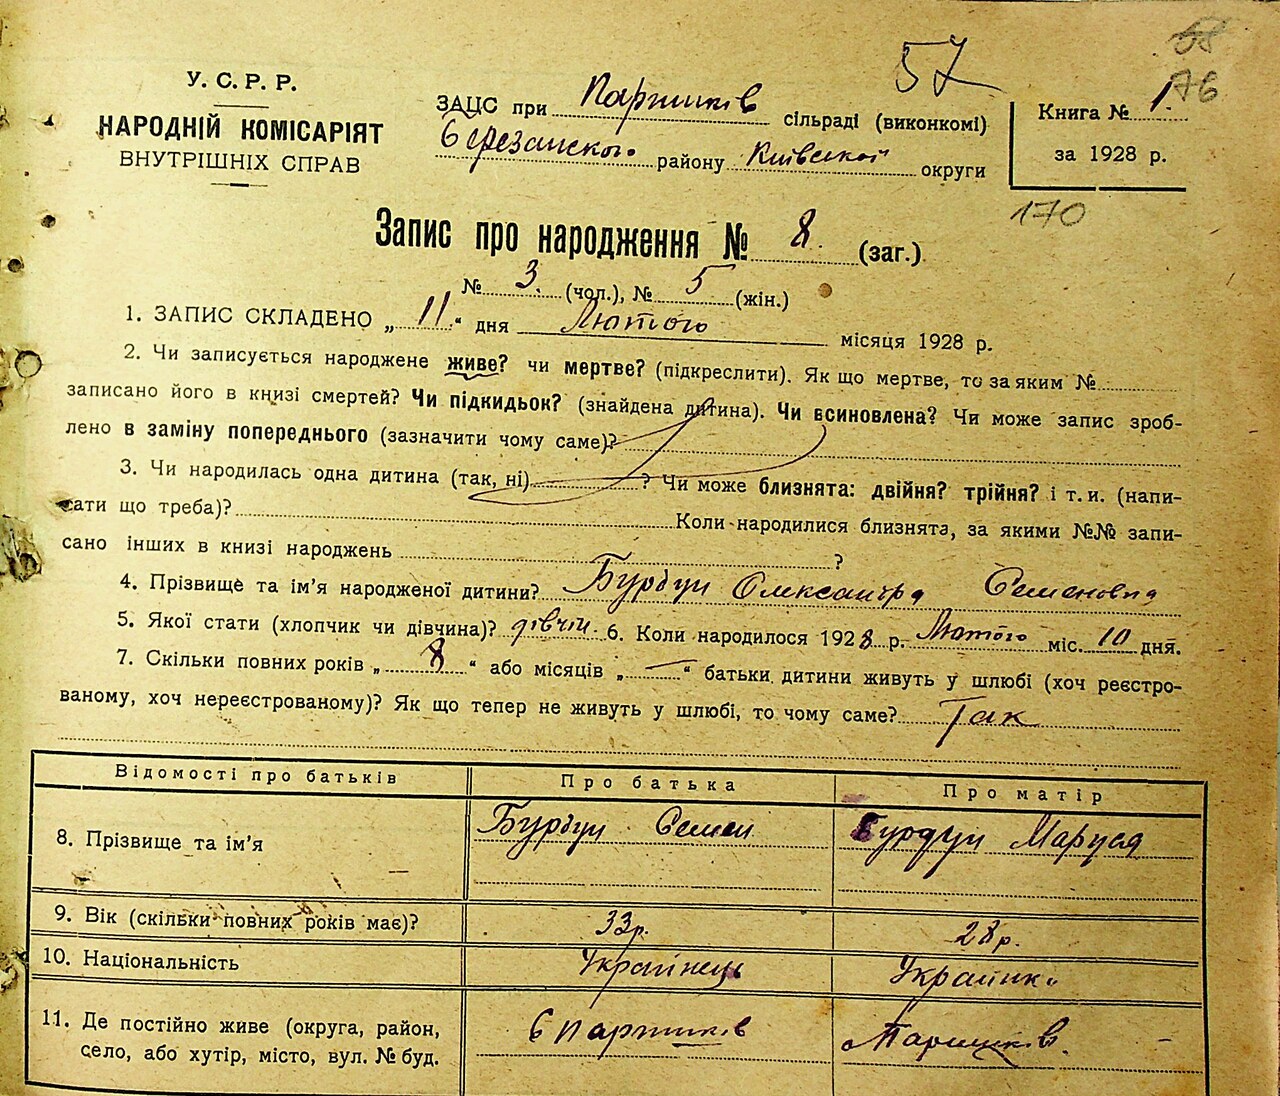 58
76
57
У. С. Р. Р.
НАРОДНІЙ КОМІСАРІЯТ
ВНУТРІШНІХ СПРАВ
ЗАЦС при Паришків сільраді (виконкомі)
Березанского району Київської округи
Книга № 1.
за 1928 р.
170
Запис про народження № 8. (заг.)
№ 3. (чол.), № 5 (жін.)
1. ЗАПИС СКЛАДЕНО „ 11 “ дня Лютого місяця 1928 р.
2. Чи записується народжене живе? чи мертве? (підкреслити). Як що мертве, то за яким №
записано його в книзі смертей? Чи підкидьок? (знайдена дитина). Чи всиновлена? Чи може запис зроб-
лено в заміну попереднього (зазначити чому саме)?
3. Чи народилась одна дитина (так, ні) ? Чи може близнята: двійня? трійня? і т. и. (напи-
сати що треба)? Коли народилися близнята, за якими №№ запи-
сано інших в книзі народжень ?
4. Прізвище та ім’я народженої дитини? Бурдун Олександра Семеновна
5. Якої стати (хлопчик чи дівчина)? дівчи. 6. Коли народилося 1928 р. Лютого міс. 10 дня.
7. Скільки повних років „ 8 “ або місяців „ — “ батьки дитини живуть у шлюбі (хоч реєстро-
ваному, хоч нереєстрованому)? Як що тепер не живуть у шлюбі, то чому саме? Так
Відомості про батьків Про батька Про матір
8. Прізвище та ім’я Бурдун Семен Бурдун Маруся
9. Вік (скільки повних років має)? 33р. 28р.
10. Національність Українець Українк
11. Де постійно живе (округа, район, с Паришків Паришків.
село, або хутір, місто, вул. № буд.